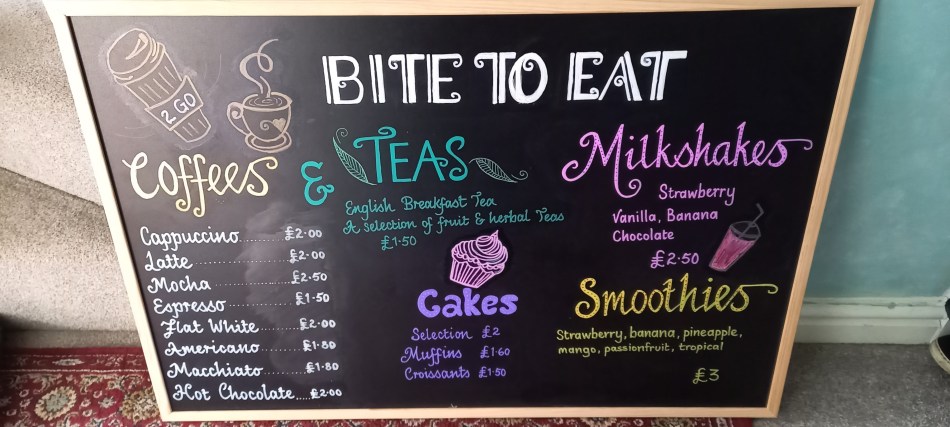 2 GO
BITE TO EAT
Coffees
Cappuccino.............£2.00
Latte....................£2.00
Mocha..................£2.50
Espresso...............£1.50
Flat White.............£2.00
Americano.............£1.80
Macchiato.............£1.80
Hot Chocolate....£2.00
& TEAS
English Breakfast Tea
A selection of fruit & herbal Teas
£1.50
Cakes
Selection £2
Muffins £1.60
Croissants £1.50
Milkshakes
Strawberry
Vanilla, Banana
Chocolate
£2.50
Smoothies
Strawberry, banana, pineapple,
mango, passionfruit, tropical
£3